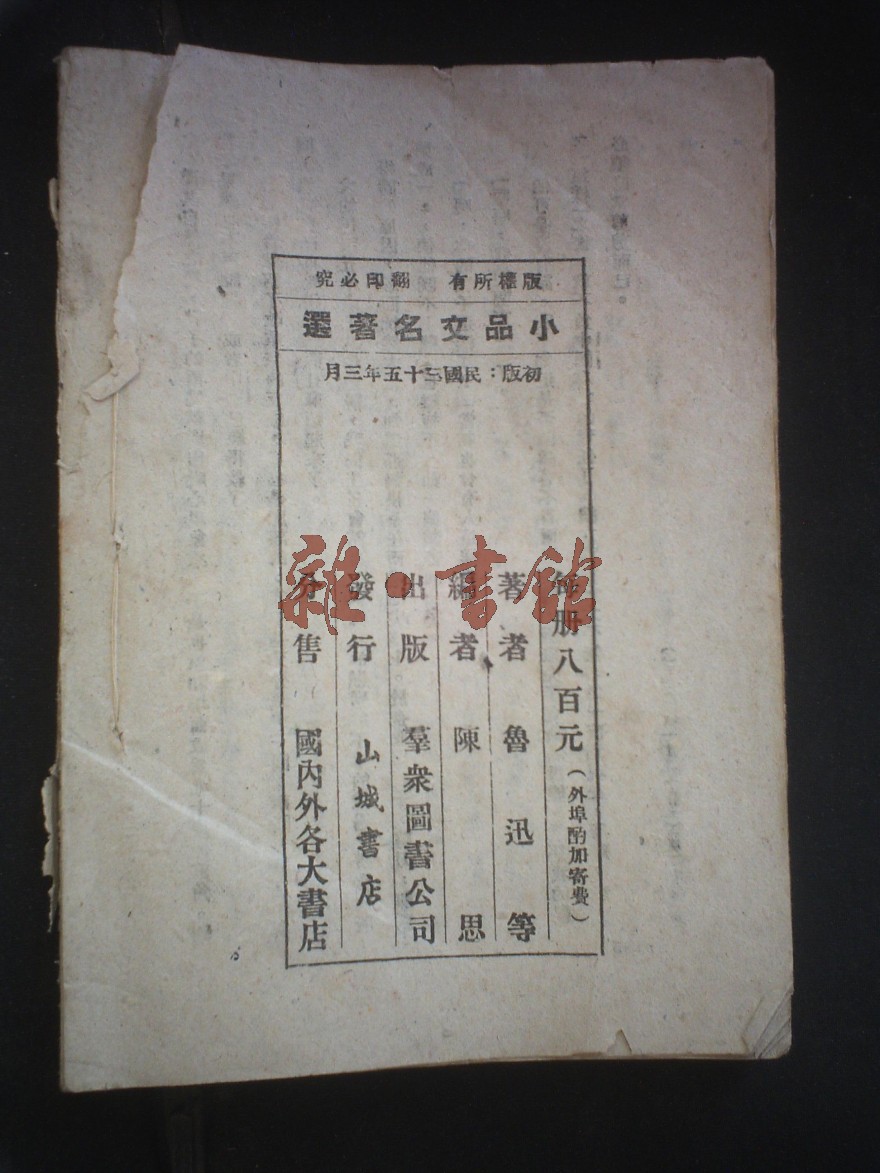 版權所有 翻印必究
小品文名著選
初版：民國三十五年三月
每册八百元（外埠酌加寄費）
著者 魯迅等
編者 陳思
出版 羣衆圖書公司
發行 山城書店
分售 國內外各大書店
雜·書館